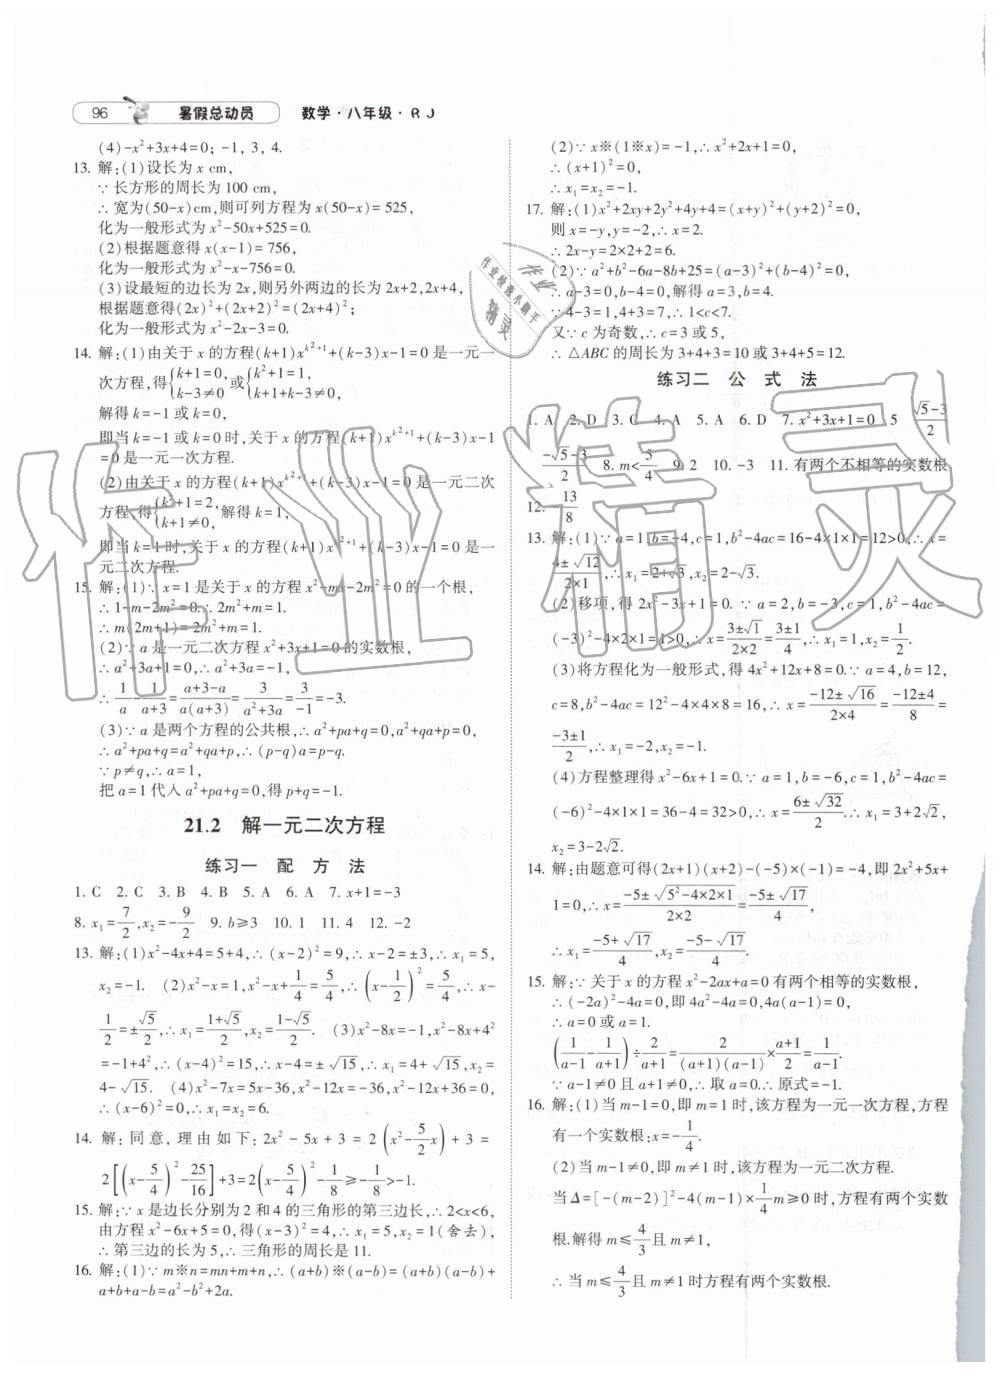 96 暑假总动员 数学·八年级·RJ
(4)-x²+3x+4=0; -1, 3, 4.
13. 解:(1)设长为 x cm,
∵ 长方形的周长为 100 cm,
∴ 宽为(50-x)cm,则可列方程为 x(50-x)=525,
化为一般形式为 x²-50x+525=0.
(2)根据题意得 x(x-1)=756,
化为一般形式为 x²-x-756=0.
(3)设最短的边长为 2x,则另外两边的长为 2x+2,2x+4,
根据题意得(2x)²+(2x+2)²=(2x+4)²;
化为一般形式为 x²-2x-3=0.
14. 解:(1)由关于 x 的方程(k+1)x^{k²+1}+(k-3)x-1=0 是一元一
次方程,得{k+1=0, k-3≠0 或{k²+1=1, k+1+k-3≠0,
解得 k=-1 或 k=0,
即当 k=-1 或 k=0 时,关于 x 的方程(k+1)x^{k²+1}+(k-3)x-1
=0 是一元一次方程.
(2)由关于 x 的方程(k+1)x^{k²+1}+(k-3)x-1=0 是一元二次
方程,得{k²+1=2, k+1≠0, 解得 k=1,
即当 k=1 时,关于 x 的方程(k+1)x^{k²+1}+(k-3)x-1=0 是一
元二次方程.
15. 解:(1)∵ x=1 是关于 x 的方程 x²-mx-2m²=0 的一个根,
∴ 1-m-2m²=0.∴ 2m²+m=1.
∴ m(2m+1)=2m²+m=1.
(2)∵ a 是一元二次方程 x²+3x+1=0 的实数根,
∴ a²+3a+1=0,∴ a²+3a=-1,
∴ 1/a-1/(a+3)=(a+3-a)/(a(a+3))=3/(a²+3a)=3/(-1)=-3.
(3)∵ a 是两个方程的公共根,∴ a²+pa+q=0,a²+qa+p=0,
∴ a²+pa+q=a²+qa+p,∴ (p-q)a=p-q.
∵ p≠q,∴ a=1,
把 a=1 代入 a²+pa+q=0,得 p+q=-1.
21.2 解一元二次方程
练习一 配 方 法
1. C 2. C 3. B 4. B 5. A 6. A 7. x+1=-3
8. x₁=7/2,x₂=-9/2 9. b≥3 10. 1 11. 4 12. -2
13. 解:(1)x²-4x+4=5+4,∴ (x-2)²=9,∴ x-2=±3,∴ x₁=5,
x₂=-1. (2)x²-x=1,x²-x+1/4=5/4,∴ (x-1/2)²=5/4,∴ x-
1/2=±√5/2,∴ x₁=(1+√5)/2,x₂=(1-√5)/2. (3)x²-8x=-1,x²-8x+4²
=-1+4²,∴ (x-4)²=15,∴ x-4=±√15,∴ x₁=4+√15,x₂=
4-√15. (4)x²-7x=5x-36,x²-12x=-36,x²-12x+36=0,
∴ (x-6)²=0,∴ x₁=x₂=6.
14. 解: 同意, 理由如下: 2x²-5x+3=2(x²-5/2x)+3=
2[(x-5/4)²-25/16]+3=2(x-5/4)²-1/8≥-1/8>-1.
15. 解:∵ x 是边长分别为 2 和 4 的三角形的第三边长,∴ 2<x<6,
由方程 x²-6x+5=0,得(x-3)²=4,∴ x₁=5,x₂=1(舍去),
∴ 第三边的长为 5,∴ 三角形的周长是 11.
16. 解:(1)∵ m※n=mn+m+n,∴ (a+b)※(a-b)=(a+b)(a-b)+
a+b+a-b=a²-b²+2a.
(2)∵ x※(1※x)=-1,∴ x²+2x+1=0,
∴ (x+1)²=0,
∴ x₁=x₂=-1.
17. 解:(1)x²+2xy+2y²+4y+4=(x+y)²+(y+2)²=0,
则 x=-y,y=-2,∴ x=2.
∴ 2x-y=2×2+2=6.
(2)∵ a²+b²-6a-8b+25=(a-3)²+(b-4)²=0,
∴ a-3=0,b-4=0,解得 a=3,b=4.
∵ 4-3=1,4+3=7,∴ 1<c<7.
又∵ c 为奇数,∴ c=3 或 5,
∴ △ABC 的周长为 3+4+3=10 或 3+4+5=12.
练习二 公 式 法
1. A 2. D 3. C 4. A 5. A 6. D 7. x²+3x+1=0 5 (√5-3)/2
(-√5-3)/2 8. m<5/4 9. 2 10. -3 11. 有两个不相等的实数根
12. -13/8
13. 解:(1)∵ a=1,b=-4,c=1,b²-4ac=16-4×1×1=12>0,∴ x=
(4±√12)/(2×1),∴ x₁=2+√3,x₂=2-√3.
(2)移项,得 2x²-3x+1=0. ∵ a=2,b=-3,c=1,b²-4ac=
(-3)²-4×2×1=1>0,∴ x=(3±√1)/(2×2)=(3±1)/4,∴ x₁=1,x₂=1/2.
(3)将方程化为一般形式,得 4x²+12x+8=0.∵ a=4,b=12,
c=8,b²-4ac=12²-4×4×8=16,∴ x=(-12±√16)/(2×4)=(-12±4)/8=
(-3±1)/2,∴ x₁=-2,x₂=-1.
(4)方程整理得 x²-6x+1=0.∵ a=1,b=-6,c=1,b²-4ac=
(-6)²-4×1×1=36-4=32>0,∴ x=(6±√32)/2.∴ x₁=3+2√2,
x₂=3-2√2.
14. 解:由题意可得(2x+1)(x+2)-(-5)×(-1)=-4,即 2x²+5x+
1=0,∴ x=(-5±√(5²-4×2×1))/(2×2)=(-5±√17)/4,
∴ x₁=(-5+√17)/4,x₂=(-5-√17)/4.
15. 解:∵ 关于 x 的方程 x²-2ax+a=0 有两个相等的实数根,
∴ (-2a)²-4a=0,即 4a²-4a=0,4a(a-1)=0,
∴ a=0 或 a=1.
(1/(a-1)-1/(a+1))÷2/(a+1)=2/((a+1)(a-1))×(a+1)/2=1/(a-1).
∵ a-1≠0 且 a+1≠0,∴ 取 a=0.∴ 原式=-1.
16. 解:(1)当 m-1=0,即 m=1 时,该方程为一元一次方程,方程
有一个实数根:x=-1/4.
(2)当 m-1≠0,即 m≠1 时,该方程为一元二次方程.
当 Δ=[-(m-2)]²-4(m-1)×1/4m≥0 时,方程有两个实数
根.解得 m≤4/3且 m≠1.
∴ 当 m≤4/3且 m≠1 时方程有两个实数根.
作业精灵
作业检查小助手
作业
精灵